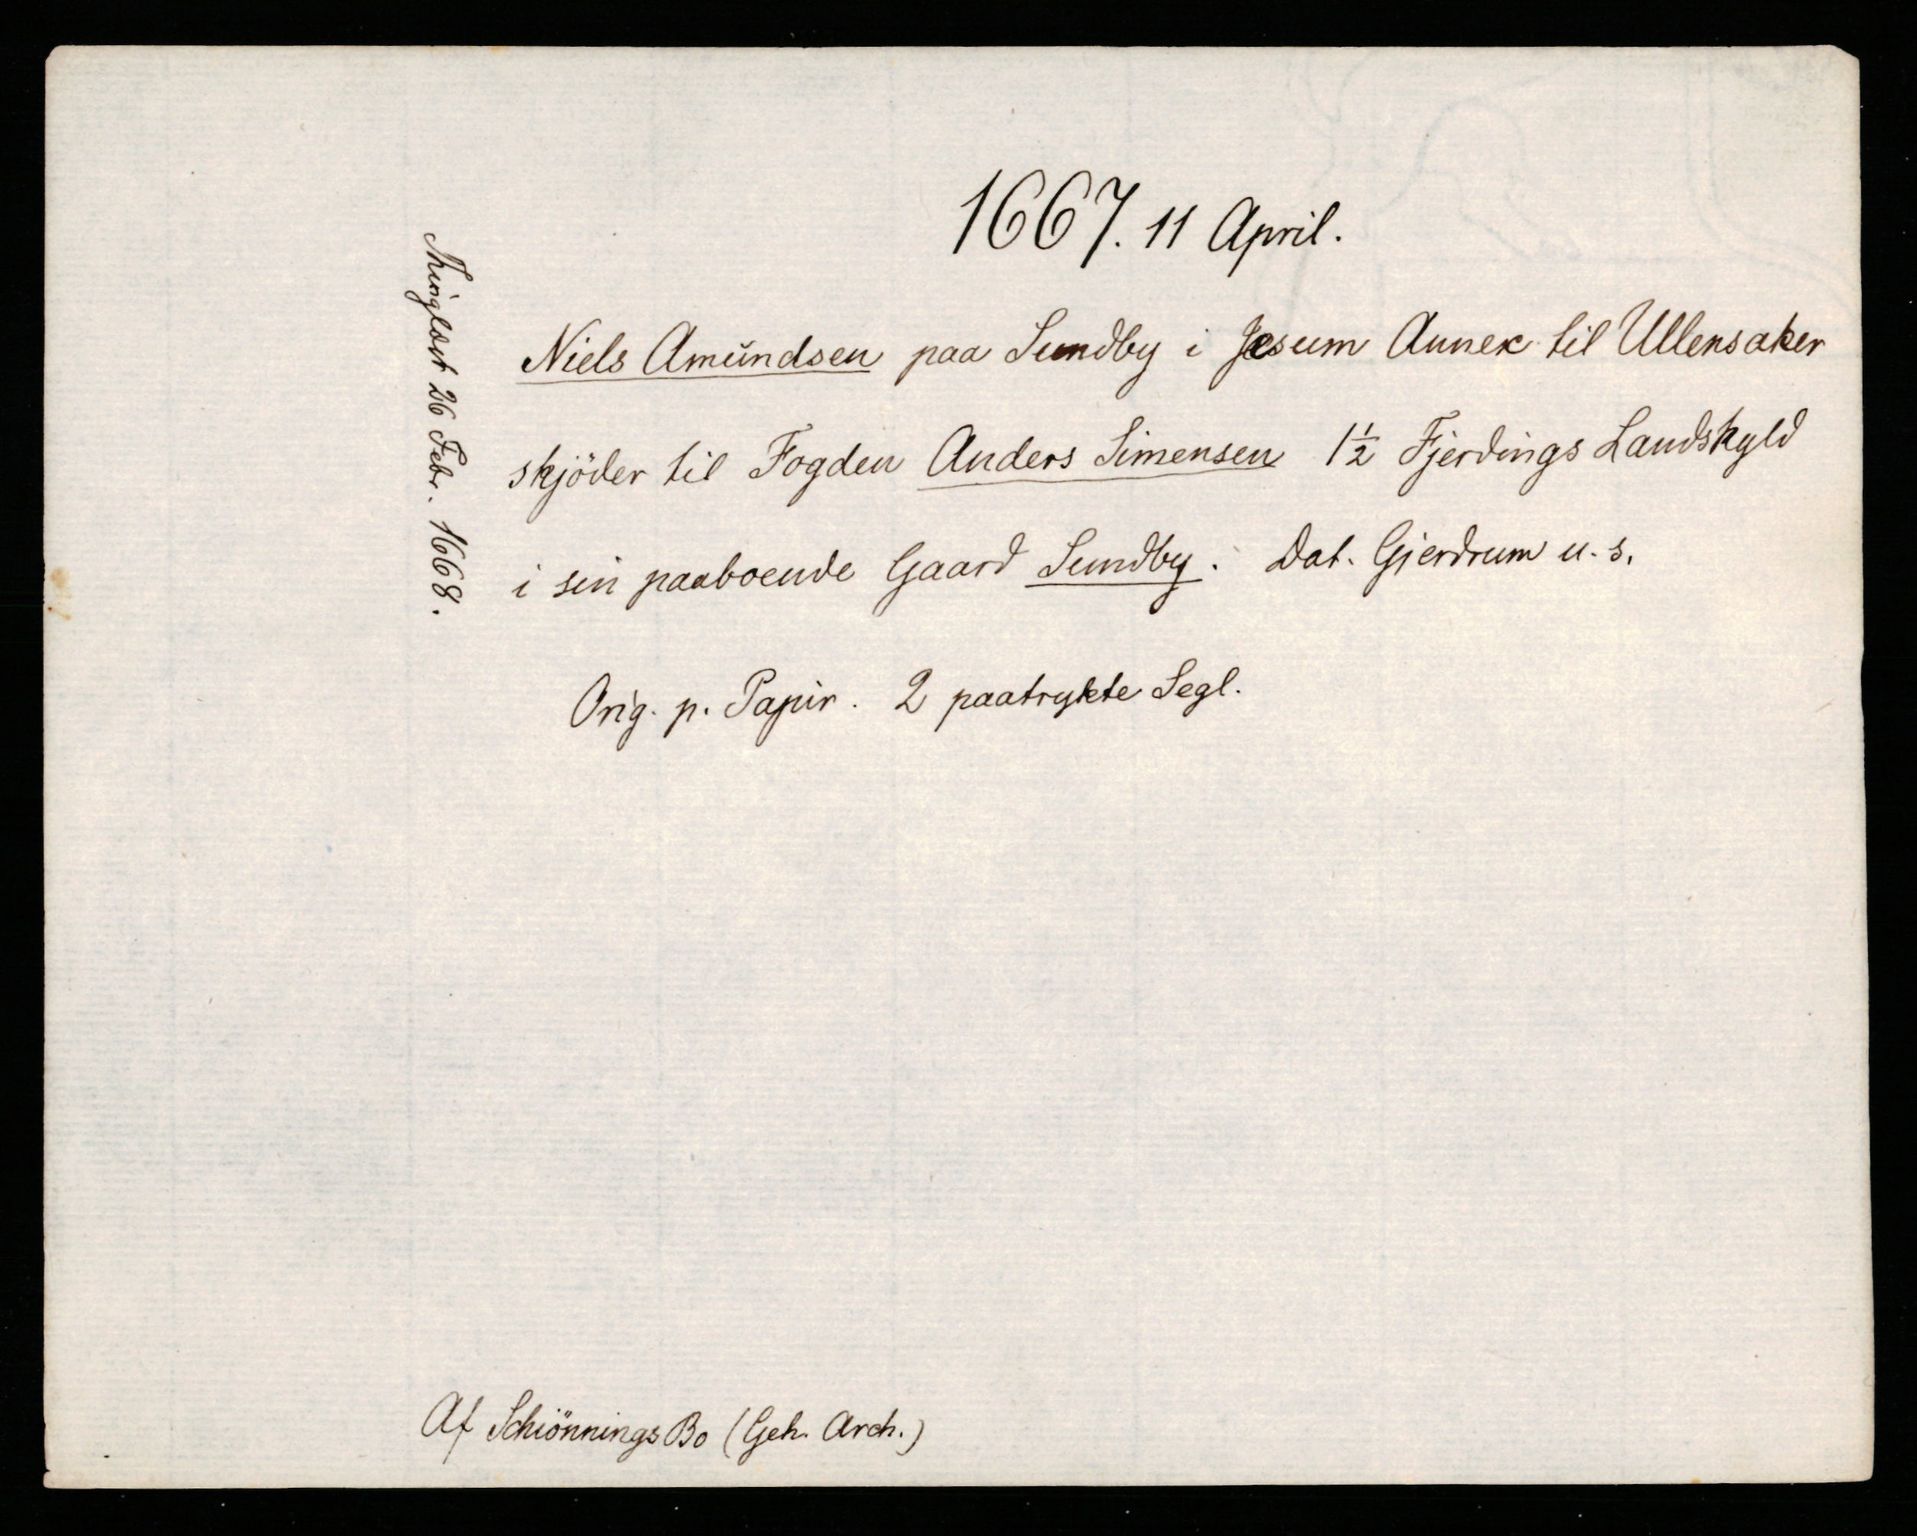 1667. 11 April.
Niels Amŭndsen paa Sundby i Jesum Annex til Ullensaker
skjöder til Fogden Anders Simensen 1½ Fjerdings Landskyld
i sin paaboende Gaard Sundby. Dat. Gjerdrum u. s.
Orig. p. Papir. 2 paatrykte Segl.
Thinglæst 26 Febr. 1668.
Af Schiönnings Bo (Geh. Arch.)